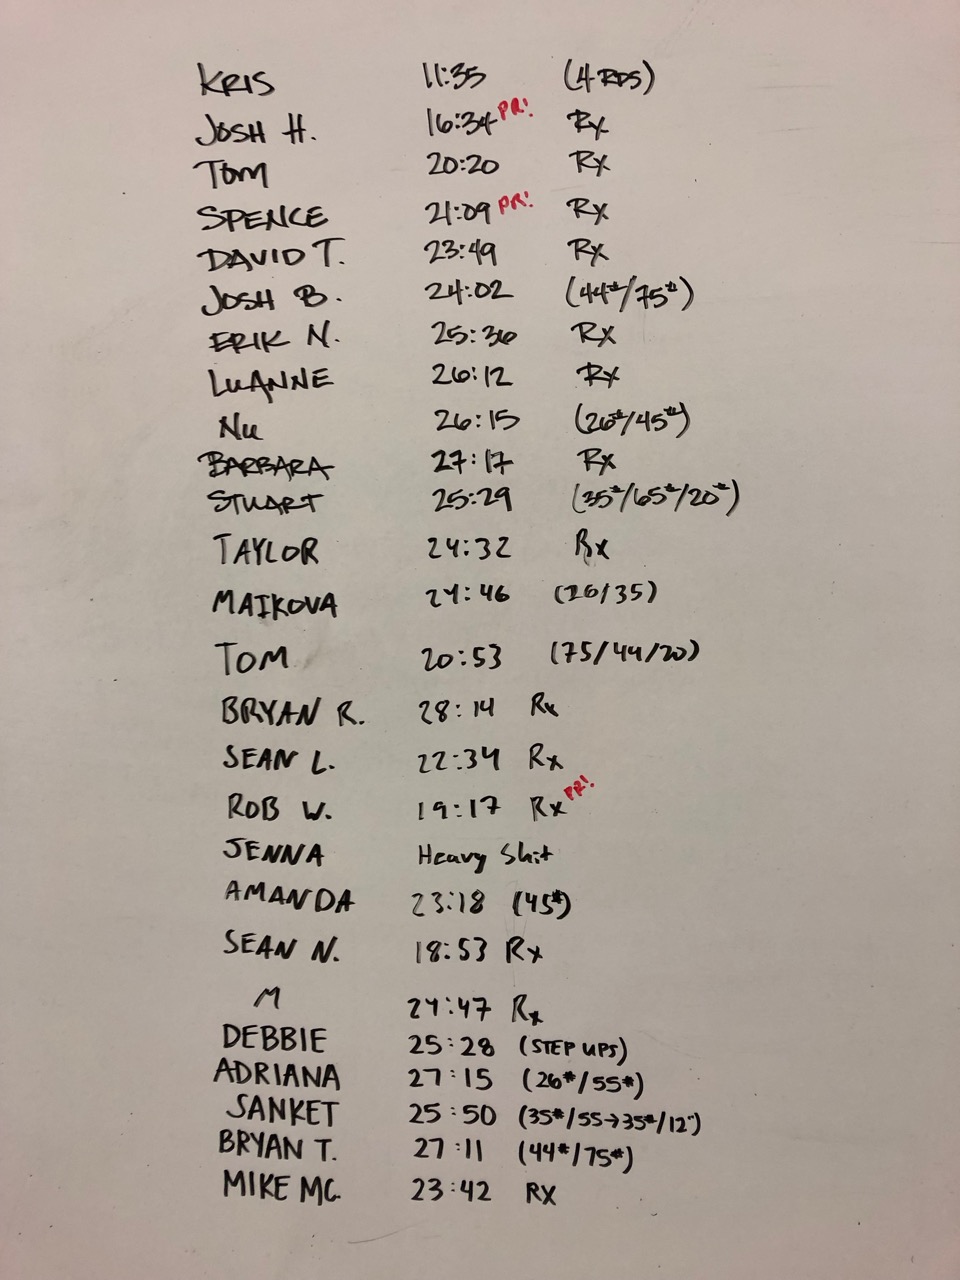 KRIS 11:35 (4 RDS)
JOSH H. 16:34 PR! Rx
TOM 20:20 Rx
SPENCE 21:09 PR! Rx
DAVID T. 23:49 Rx
JOSH B. 24:02 (44#/75#)
ERIK N. 25:36 Rx
LUANNE 26:12 Rx
NU 26:15 (26#/45#)
BARBARA 27:17 Rx
STUART 25:29 (35#/65#/20#)
TAYLOR 24:32 Rx
MAIKOVA 24:46 (26/35)
TOM 20:53 (75/44/20)
BRYAN R. 28:14 Rx
SEAN L. 22:34 Rx
ROB W. 19:17 Rx PR!
JENNA Heavy Shit
AMANDA 23:18 (45#)
SEAN N. 18:53 Rx
M 24:47 Rx
DEBBIE 25:28 (STEP UPS)
ADRIANA 27:15 (26#/55#)
SANKET 25:50 (35#/55→35#/12")
BRYAN T. 27:11 (44#/75#)
MIKE MC. 23:42 RX